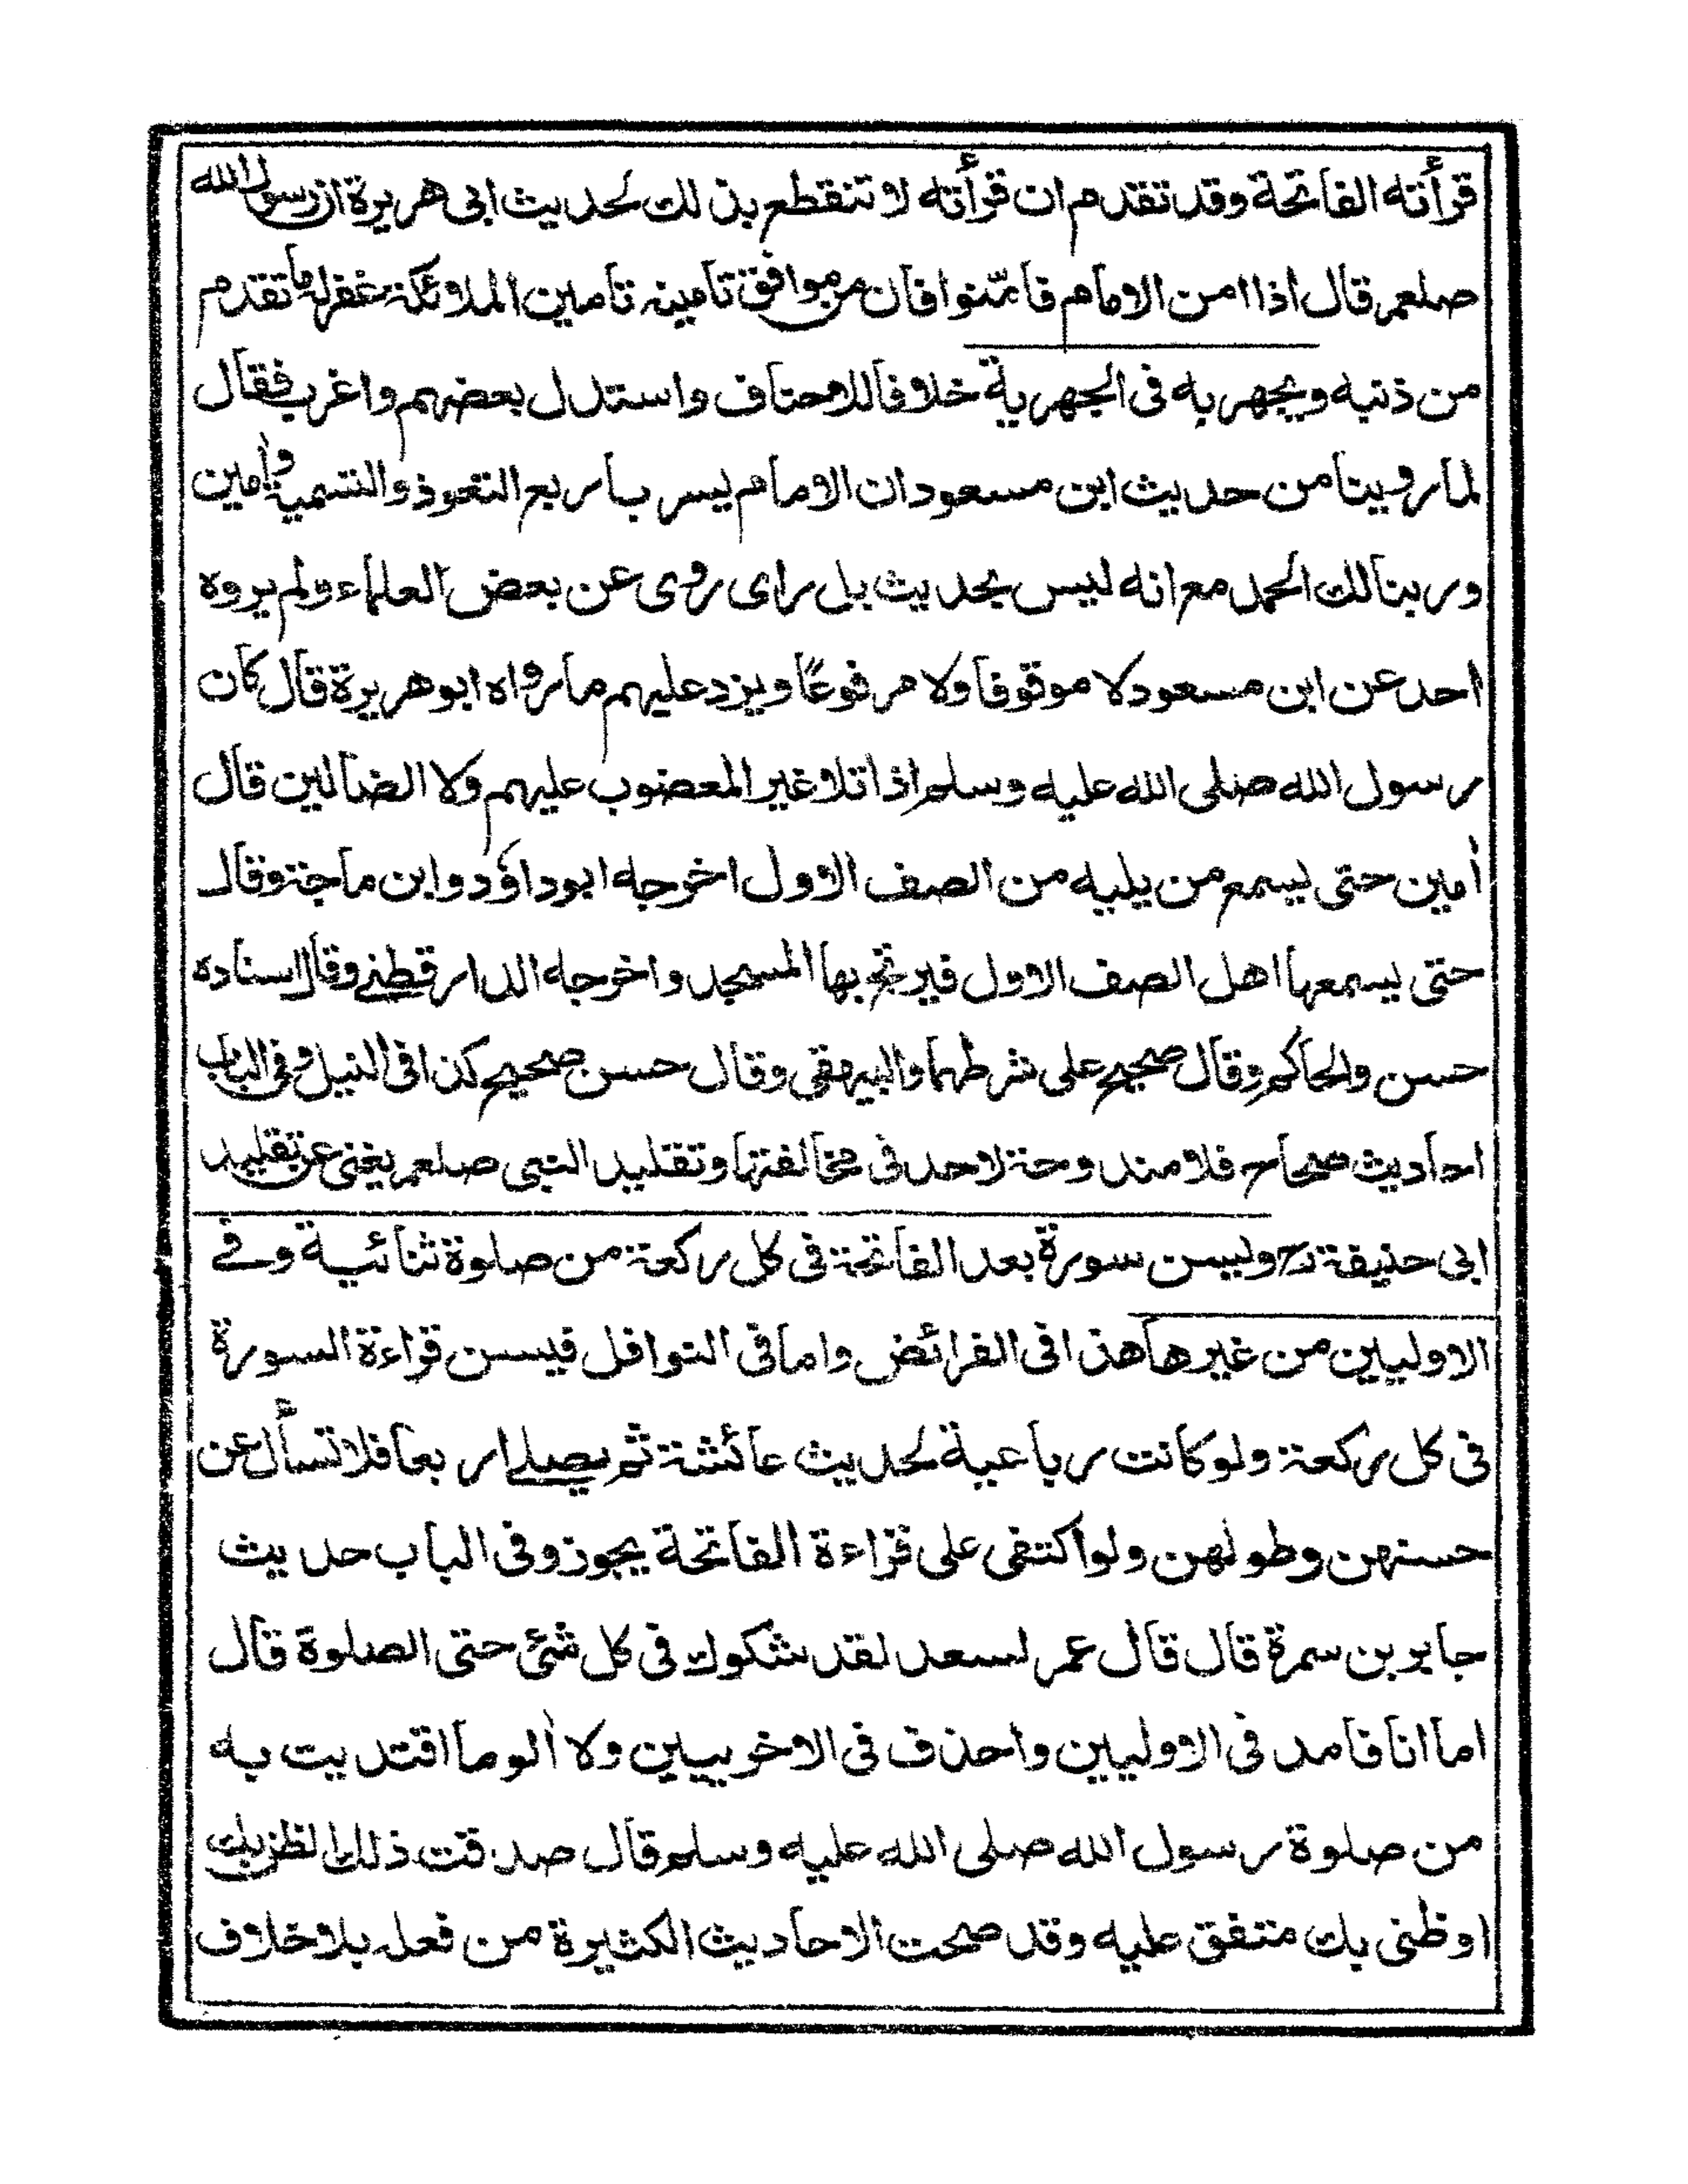 قرأته الفاتحة وقد تقدم ان قرأته لا تنقطع بذلك لحديث ابى هريرة ان رسول الله
صلعم قال اذا امن الامام فامّنوا فان من موافق تامينه تامين الملائكة غفر له ما تقدم
من ذنبه ويجهر به فى الجهرية خلافا للاحناف واستدل بعضهم واغرب فقال
لما روينا من حديث ابن مسعود ان الامام يسر باربع التعوذ والتسمية وأمين
وربنا لك الحمد مع انه ليس بحديث بل راى روى عن بعض العلماء ولم يروه
احد عن ابن مسعود لا موقوفا ولا مرفوعًا ويرد عليهم ما رواه ابو هريرة قال كان
رسول الله صلى الله عليه وسلم اذا تلا غير المغضوب عليهم ولا الضالين قال
أمين حتى يسمع من يليه من الصف الاول اخرجه ابو داؤد وابن ماجة وقال
حتى يسمعها اهل الصف الاول فيرتج بها المسجد واخرجه الدارقطنے وقال اسناده
حسن والحاكم وقال صحيح على شرطهما والبيهقى وقال حسن صحيح كذا فى النيل وفى الباب
احاديث صحاح فلا مندوحة لاحد فى مخالفتها وتقليد النبى صلعم يغنى عن تقليد
ابى حنيفة رح وليسن سورة بعد الفاتحة فى كل ركعة من صلوة ثنائية وفے
الاوليين من غيرها هذا فى الفرائض واما فى النوافل فيسن قراءة السورة
فى كل ركعة ولو كانت رباعية لحديث عائشة ثم يصلے اربعا فلا تسأل عن
حسنهن وطولهن ولو اكتفى على قراءة الفاتحة يجوز وفى الباب حديث
جابر بن سمرة قال قال عمر لسعد لقد شكوك فى كل شئ حتى الصلوة قال
اما انا فامد فى الاوليين واحذف فى الاخريين ولا ألو ما اقتديت به
من صلوة رسول الله صلى الله عليه وسلم قال صدقت ذلك الظن بك
اوظنى بك متفق عليه وقد صحت الاحاديث الكثيرة من فعله بلا خلاف